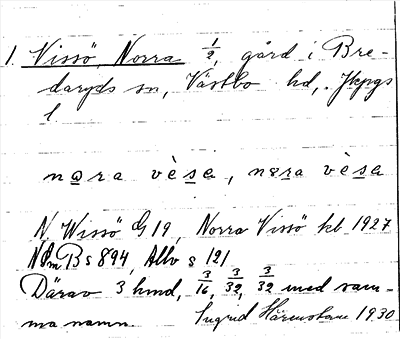 1. Vissö, Norra 1/2, gård i Bre-
daryds sn, Västbo hd, Jkpgs
l
nọra vèsẹ, nọra vèsa
N. Wissö G 19, Norra Vissö kb 1927
B s 894, Allv s 121
Därav 3 hmd, 3/16, 3/32, 3/32 med sam-
ma namn. Ingrid 1930